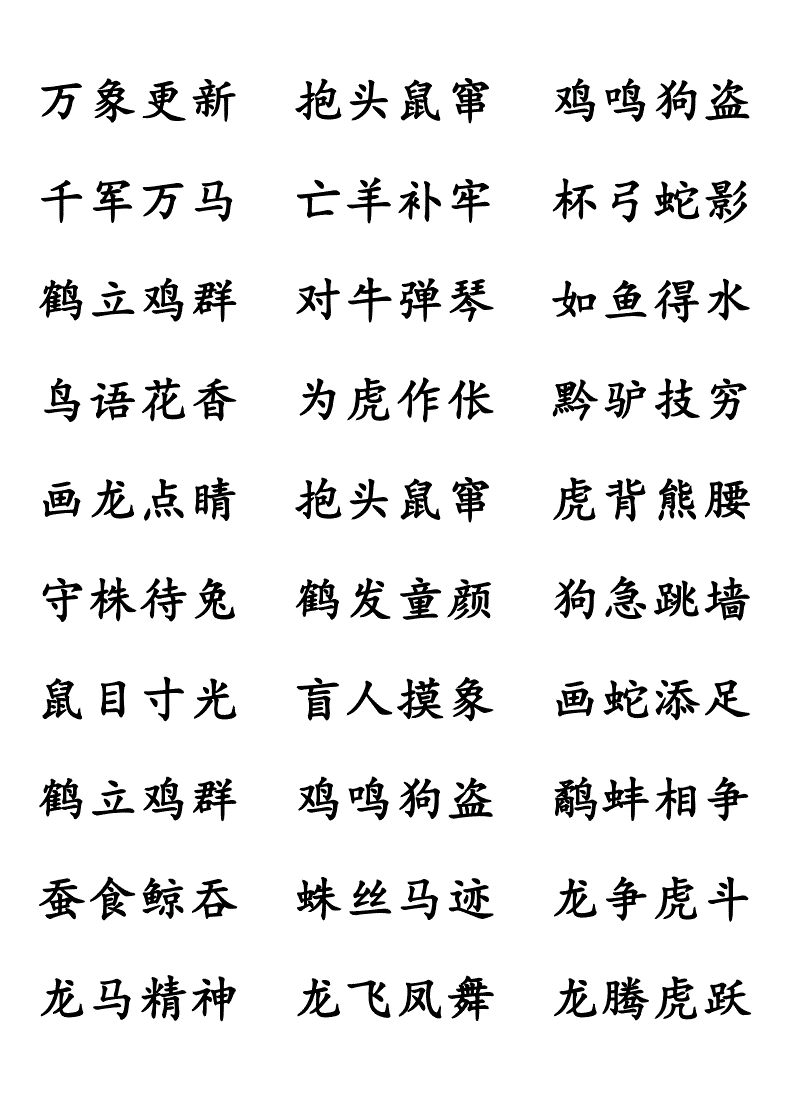 万象更新 抱头鼠窜 鸡鸣狗盗
千军万马 亡羊补牢 杯弓蛇影
鹤立鸡群 对牛弹琴 如鱼得水
鸟语花香 为虎作伥 黔驴技穷
画龙点睛 抱头鼠窜 虎背熊腰
守株待兔 鹤发童颜 狗急跳墙
鼠目寸光 盲人摸象 画蛇添足
鹤立鸡群 鸡鸣狗盗 鹬蚌相争
蚕食鲸吞 蛛丝马迹 龙争虎斗
龙马精神 龙飞凤舞 龙腾虎跃